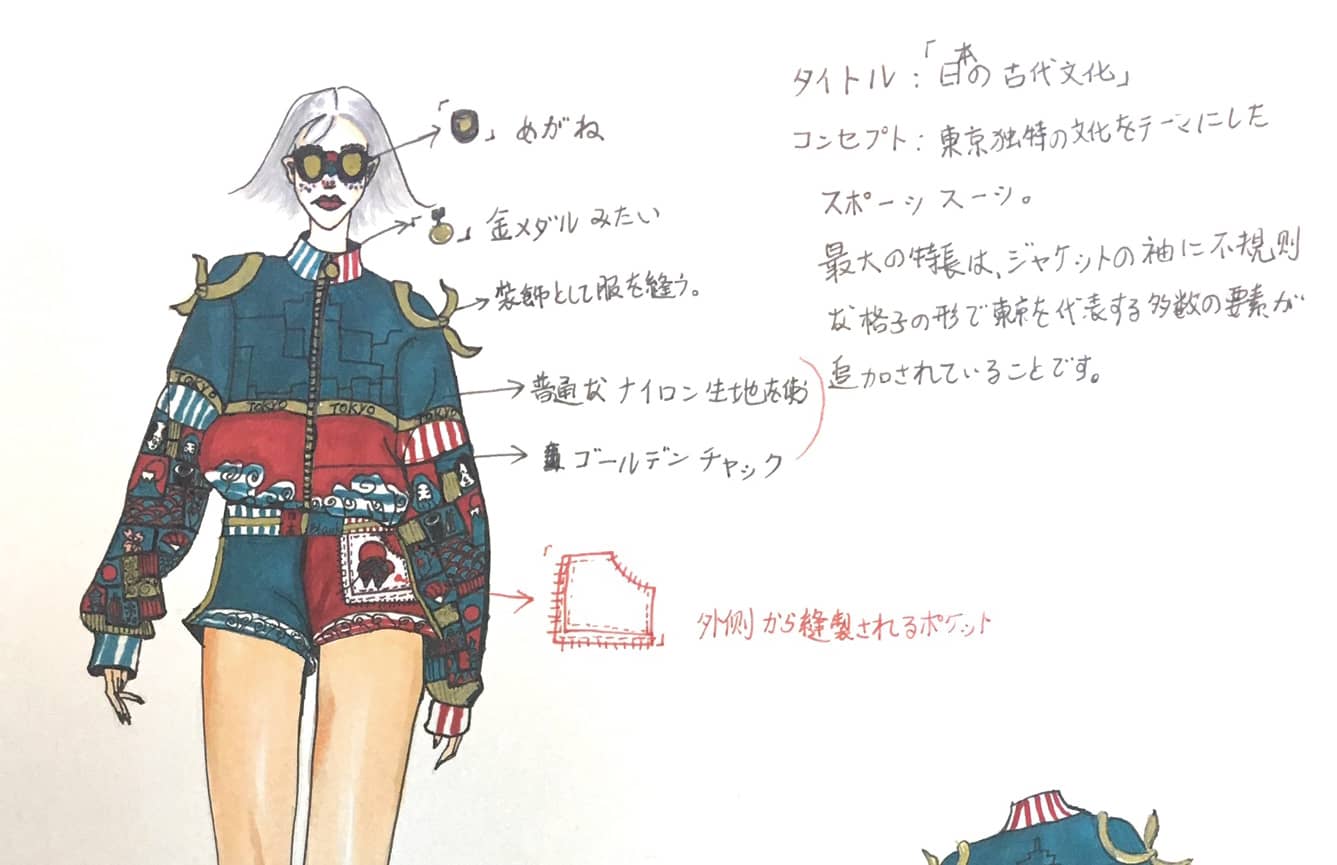 タイトル:「日本の古代文化」
コンセプト:東京独特の文化をテーマにした
スポーツ スーツ。
最大の特長は、ジャケットの袖に不規則
な格子の形で東京を代表する多数の要素が
追加されていることです。
「 」めがね
「 」金メダル みたい
装飾として服を縫う。
普通な ナイロン生地を使う
ゴールデン チャック
「 」外側から縫製されるポケット
TOKYO
TOKYO
TOKYO
TOKYO